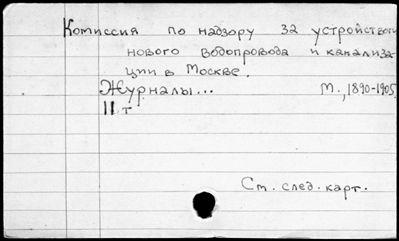 Комиссия по надзору за устройством
нового водопровода и канализа-
ции в Москве.
Журналы... М., 1890-1905
11 т
См. след. карт.